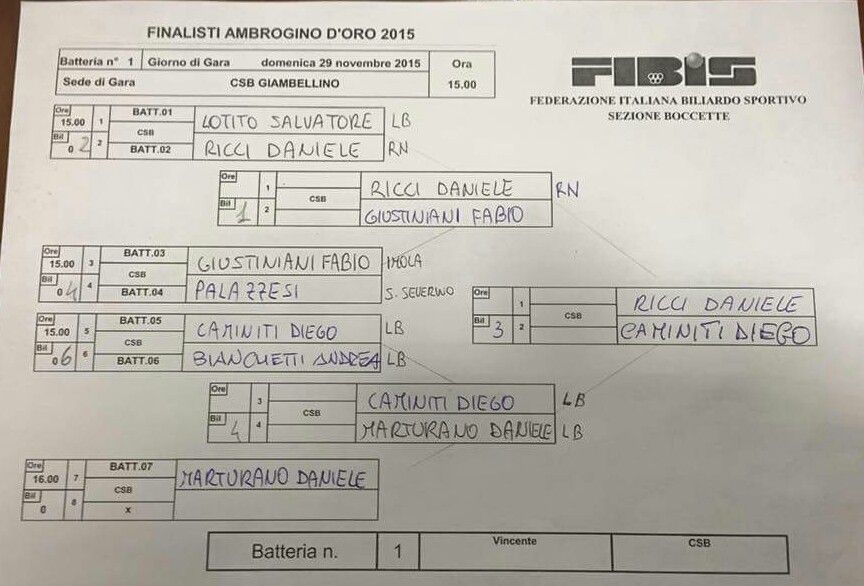 FINALISTI AMBROGINO D'ORO 2015
Batteria n° 1 Giorno di Gara domenica 29 novembre 2015 Ora
Sede di Gara CSB GIAMBELLINO 15.00
FIBIS
FEDERAZIONE ITALIANA BILIARDO SPORTIVO
SEZIONE BOCCETTE
Ore 15.00 1 BATT.01 LOTITO SALVATORE LB
CSB
Bil 0 2 2 BATT.02 RICCI DANIELE RN
Ore 1 RICCI DANIELE RN
CSB
Bil 1 2 GIUSTINIANI FABIO
Ore 15.00 3 BATT.03 GIUSTINIANI FABIO IMOLA
CSB
Bil 0 4 4 BATT.04 PALAZZESI S. SEVERINO
Ore 1 RICCI DANIELE
CSB
Bil 3 2 CAMINITI DIEGO
Ore 15.00 5 BATT.05 CAMINITI DIEGO LB
CSB
Bil 0 6 6 BATT.06 BIANCHETTI ANDREA LB
Ore 3 CAMINITI DIEGO LB
CSB
Bil 4 4 MARTURANO DANIELE LB
Ore 16.00 7 BATT.07 MARTURANO DANIELE
CSB
Bil 0 8 x
Batteria n. 1 Vincente CSB